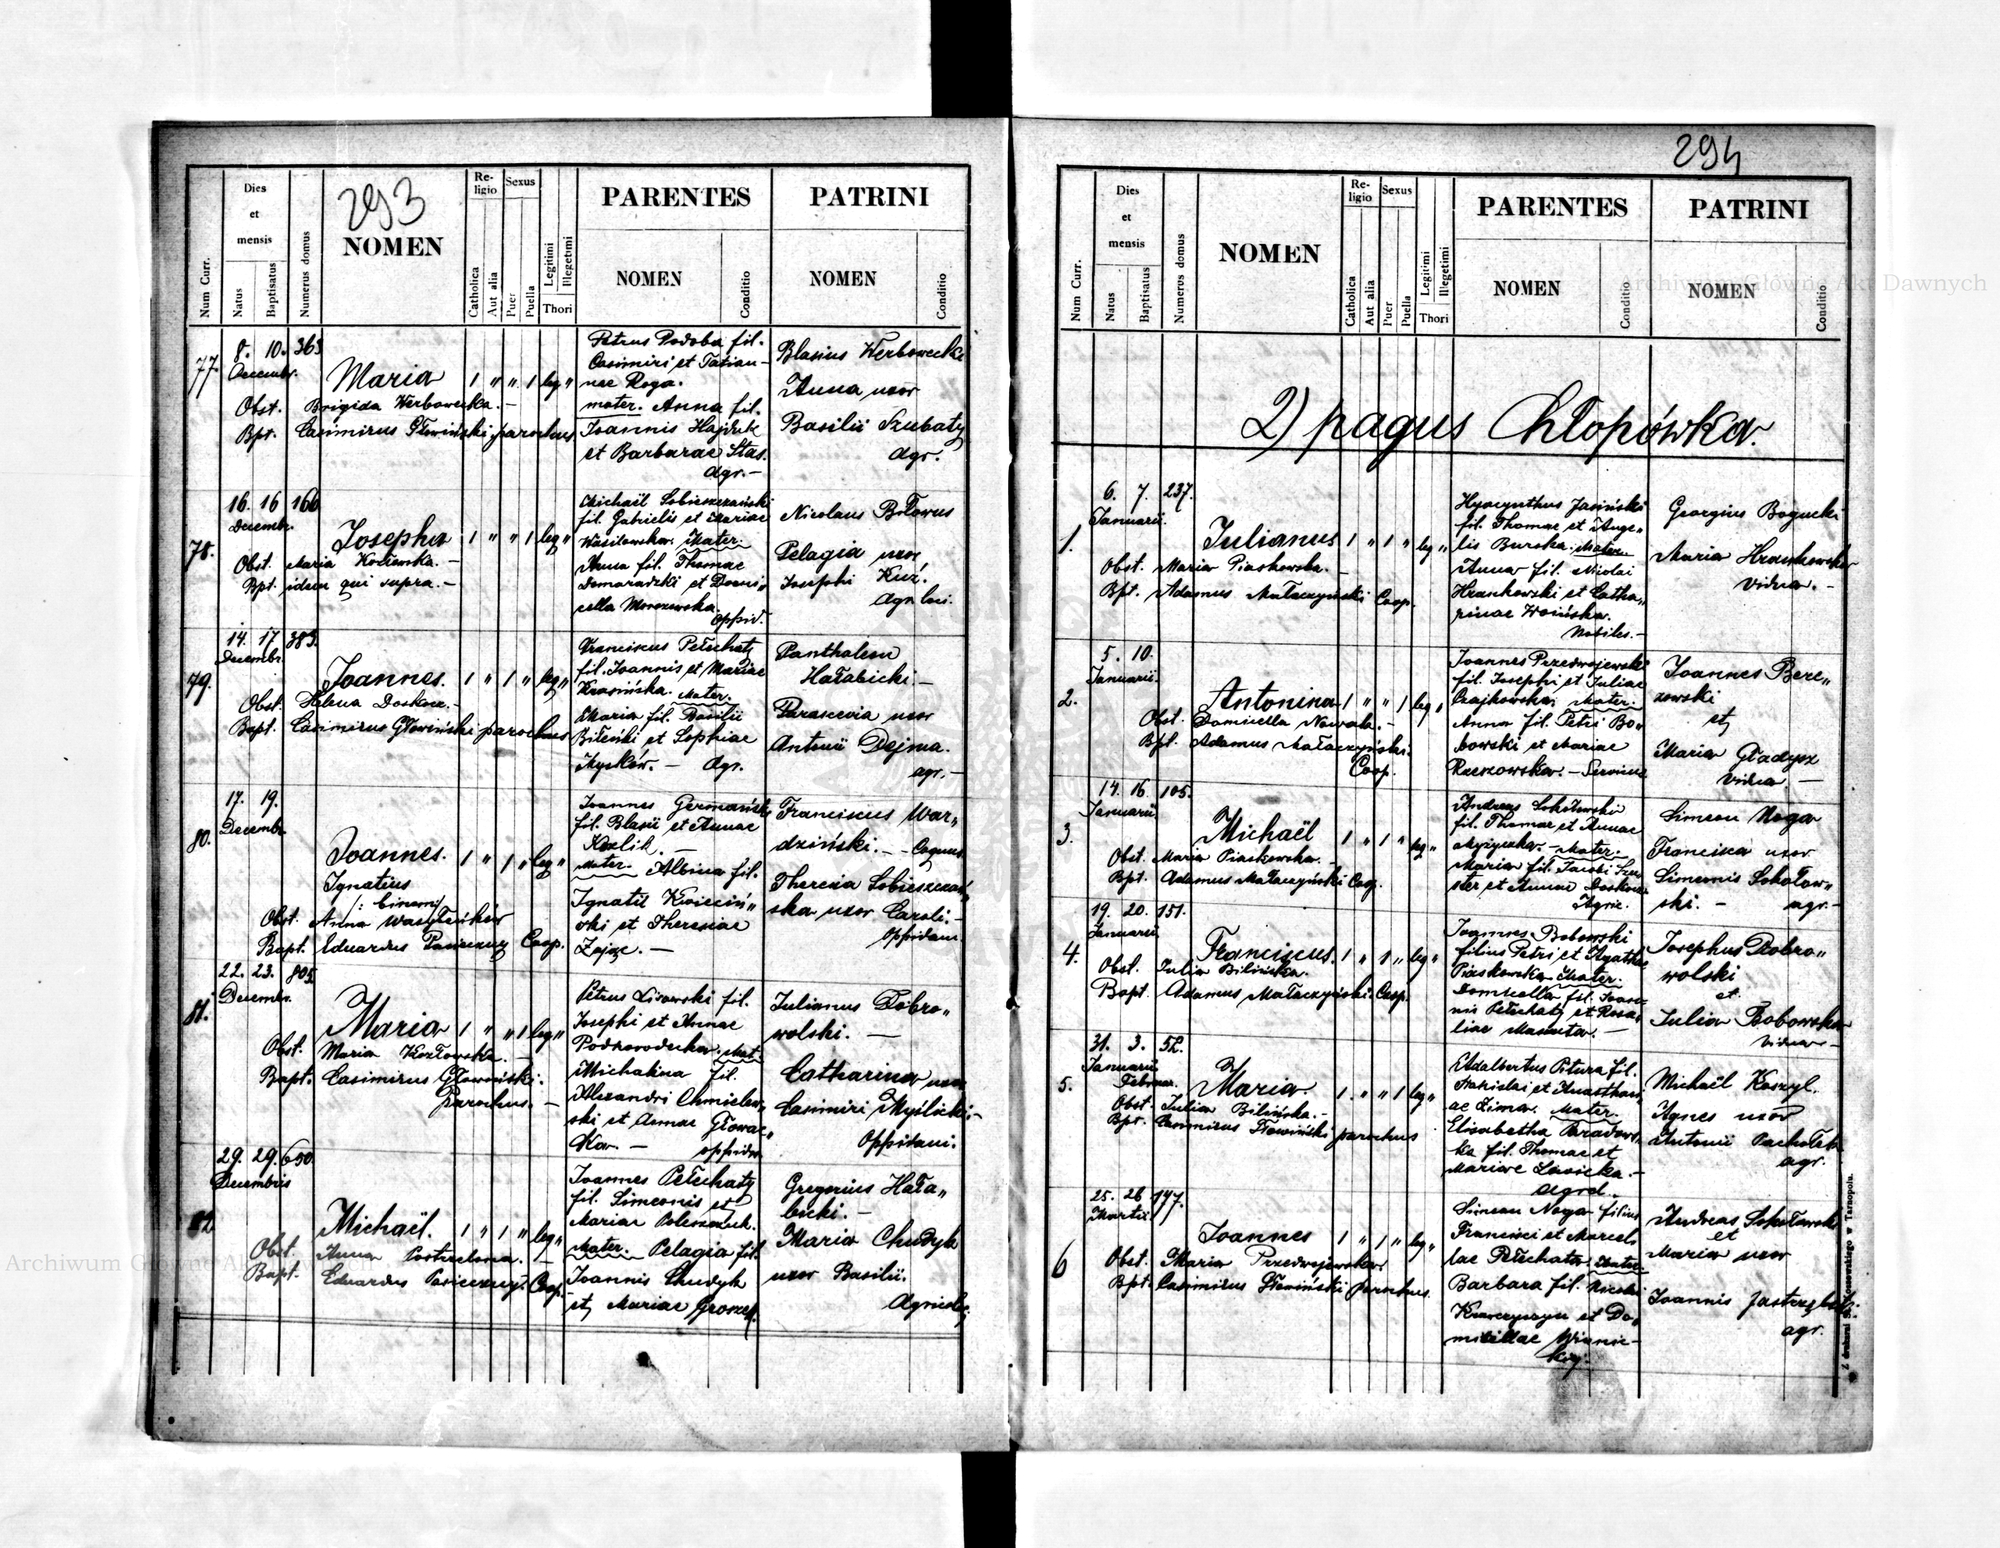 293
Num Curr.
Dies
et
mensis
Natus
Baptisatus
Numerus domus
NOMEN
Re-
ligio
Catholica
Aut alia
Sexus
Puer
Puella
Legitimi
Illegetimi
Thori
PARENTES
NOMEN
Conditio
PATRINI
NOMEN
Conditio
77.
8. 10. 365
Decembr.
Maria 1 " " 1 leg "
Obst. Brigida Werbowecka. –
Bpt. Casimirus Głowiński parochus
Petrus Podoba fil.
Casimiri et Tatian-
nae Roga.
mater. Anna fil.
Joannis Hajduk
et Barbarae Stas.
agr. –
Blasius Werbowecki
Anna uxor
Basilii Szubaty
agr.
78.
16. 16 166
Decembr.
Josephus 1 " " 1 leg "
Obst. Maria Kozłowska. –
Bpt. idem qui supra. –
Michaël Sobieszczański
fil. Gabrielis et Mariae
Wasilowska. Mater.
Anna fil. Thomae
Domaradzki et Domi"
cella Morozowska.
oppid.
Nicolaus Biłowus
Pelagia uxor
Josephi Kuź.
Agr. loci.
79.
14. 17 383.
Decembr.
Joannes. 1 " 1 " leg "
Obst. Helena Doskocz. –
Bapt. Casimirus Głowiński parochus
Franciscus Pełechaty
fil. Joannis et Mariae
Krasińska. Mater.
Maria fil. Basilii
Biłeński et Sophiae
Agr.
Panthaleon
Hałabicki. –
Parascevia uxor
Antonii Dejma.
agr. –
80.
17. 19.
Decembr.
Joannes. 1 " 1 " leg "
Ignatius
/: binomi
Obst. Anna Wasyleńków
Bapt. Eduardus Coop.
Joannes Germański
fil. Blasii et Annae
Kozlik. –
Mater. Albina fil.
Ignatii Kwieciń"
ski et Theresiae
Zając. –
Franciscus War"
dziński. –
Theresia Sobieszczań"
ska uxor Caroli. –
Oppidani.
81.
22. 23. 805
Decembr.
Maria 1 " " 1 leg "
Obst. Maria Kozłowska. –
Bapt. Casimirus Głowiński.
Parochus. –
Petrus Lisowski fil.
Josephi et Annae
Podhorodecka. Mat.
Michalina fil.
Alexandri Chmielew"
ski et Annae Głowac"
ka. – oppidan.
Julianus Dobro"
wolski. –
Catharina uxor
Casimiri Myślicki –
Oppidani.
82
29. 29. 650
Decembris
Michaël. 1 " 1 " leg "
Obst. Anna –
Bapt. Eduardus Coop.
Joannes Pełechaty
fil. Simeonis et
Mariae
Mater. Pelagia fil.
Joannis Chudyk
et Mariae
Gregorius Hała"
bicki. –
Maria Chudyk
uxor Basilii.
Agricolae
294
Num Curr.
Dies
et
mensis
Natus
Baptisatus
Numerus domus
NOMEN
Re-
ligio
Catholica
Aut alia
Sexus
Puer
Puella
Legitimi
Illegetimi
Thori
PARENTES
NOMEN
Conditio
PATRINI
NOMEN
Conditio
2) pagus Chłopówka.
1.
6. 7. 237.
Januarii.
Julianus 1 " 1 " leg "
Obst. Maria Piaskowska. –
Bpt. Adamus Małaczyński Coop.
Hyacynthus Jasiński
fil. Thomae et Ange"
lis Burska. Mater.
Anna fil. Nicolai
Hrankowski et Catha"
rinae Woińska.
Nobiles. –
Georgius Bogucki
Maria Hrankowska
vidua. –
2.
5. 10.
Januarii.
Antonina 1 " " 1 leg "
Obst. Domicella Nawrota. –
Bpt. Adamus Małaczyński.
Coop.
Joannes Przedwojewski
fil. Josephi et Juliae
Czajkowska. Mater.
Anna fil. Petri Bo"
bowski et Mariae
Rzeszowska. –
Joannes Bere"
zowski
et
Maria Gładysz
vidua –
3.
14. 16. 105.
Januarii
Michaël 1 " 1 " leg "
Obst. Maria Piaskowska. –
Bpt. Adamus Małaczyński Coop.
Andreas Sokołowski
fil. Thomae et Annae
Mater.
Maria fil. Jacobi
ster et Annae Doskocz
Agric.
Simeon Noga
Francisca uxor
Simeonis Sokołow"
ski. – agr. –
4.
19. 20. 151.
Januarii
Franciscus. 1 " 1 " leg "
Obst. Julia Bilińska.
Bapt. Adamus Małaczyński Coop.
Joannes Bobowski
filius Petri et Agathae
Piaskowska. Mater.
Domicella fil. Joan"
nis Pełechaty et Rosa"
liae
Josephus Dobro"
wolski
et
Julia Bobowska
vidua –
5.
31. 3. 52.
Januarii
Februar.
Maria. 1. " " 1 leg "
Obst. Julia Bilińska. –
Bpt. Casimirus Głowiński parochus
Adalbertus Pitura fil.
Stanislai et Anasthasi
ae Zima. Mater.
Elisabetha Paradows"
ka fil. Thomae et
Mariae Sawicka. –
Agricol.
Michaël Koszyl.
Agnes uxor
Antonii Pachołek
agr.
6
25. 26 177.
Martii
Joannes 1 " 1 " leg "
Obst. Maria Przedwojewska.
Bpt. Casimirus Głowiński parochus.
Simeon Noga filius
Francisci et Marcel"
lae Pełechata. Mater.
Barbara fil. Nicolai
Krawczyszyn et Do"
micellae Winnic-
kij.
Andreas Sokołowski
et
Maria uxor
Joannis
agr.
Archiwum Główne Akt Dawnych
Archiwum Główne Akt Dawnych